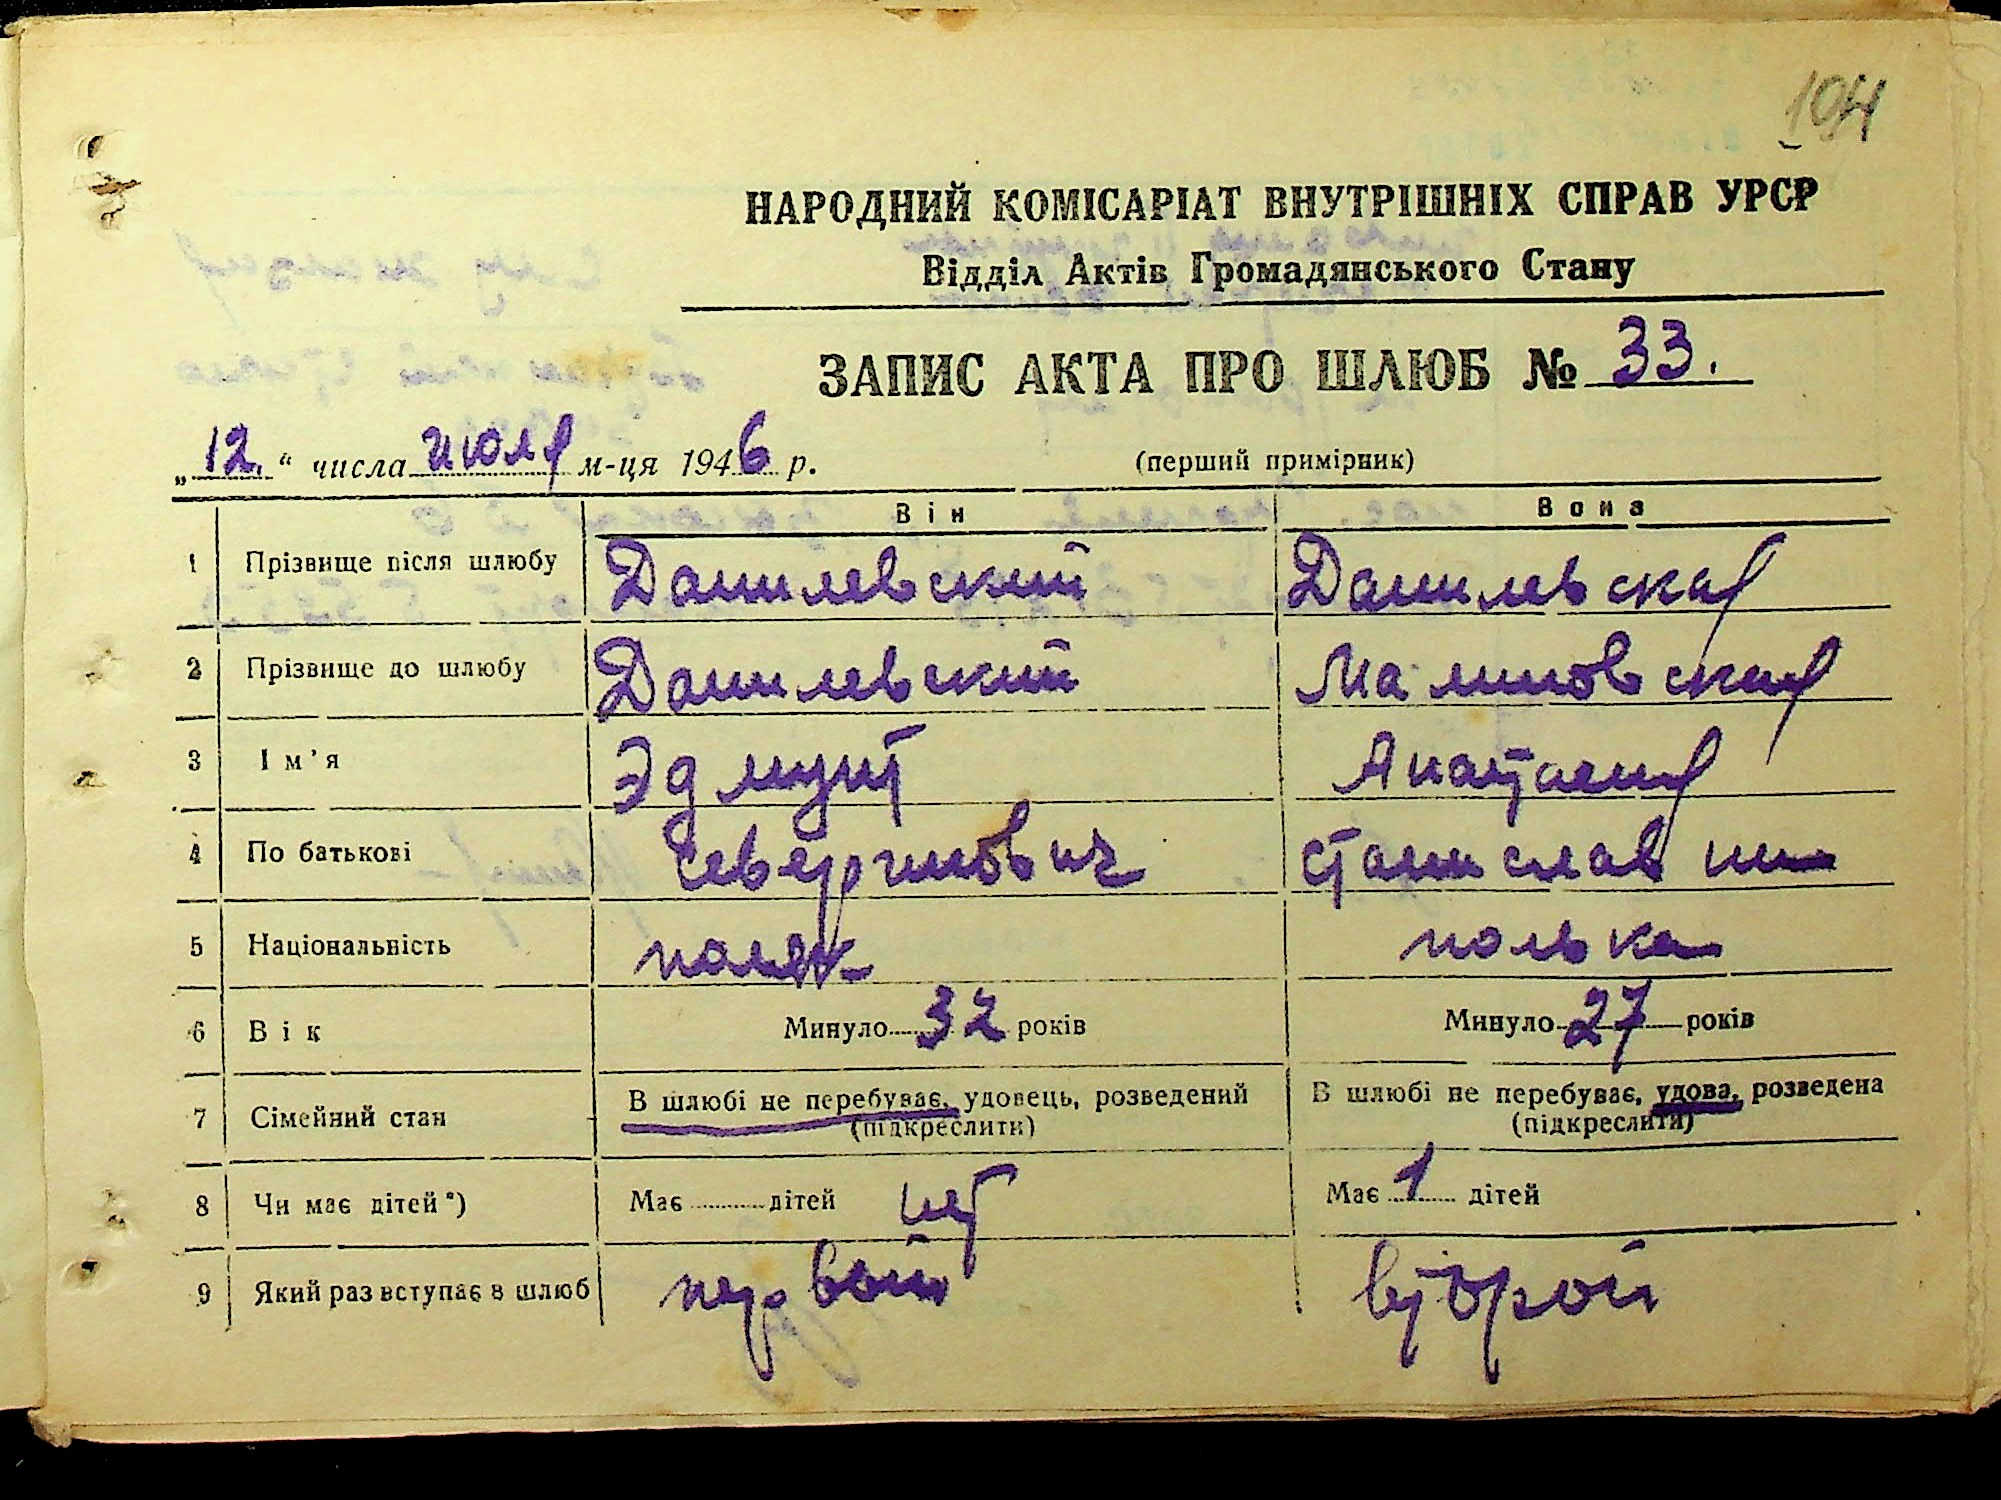 104
НАРОДНИЙ КОМІСАРІАТ ВНУТРІШНІХ СПРАВ УРСР
Відділ Актів Громадянського Стану
ЗАПИС АКТА ПРО ШЛЮБ № 33.
„12.“ числа июля м-ця 1946 р. (перший примірник)
Він Вона
1 Прізвище після шлюбу Данилевский Данилевская
2 Прізвище до шлюбу Данилевский Малиновская
3 Ім'я Эдмунт Анастасия
4 По батькові Северинович Станислав
5 Національність поляк полька
6 Вік Минуло 32 років Минуло 27 років
7 Сімейний стан В шлюбі не перебуває, удовець, розведений В шлюбі не перебуває, удова, розведена
(підкреслити) (підкреслити)
8 Чи має дітей*) Має дітей нет Має 1 дітей
9 Який раз вступає в шлюб первой второй